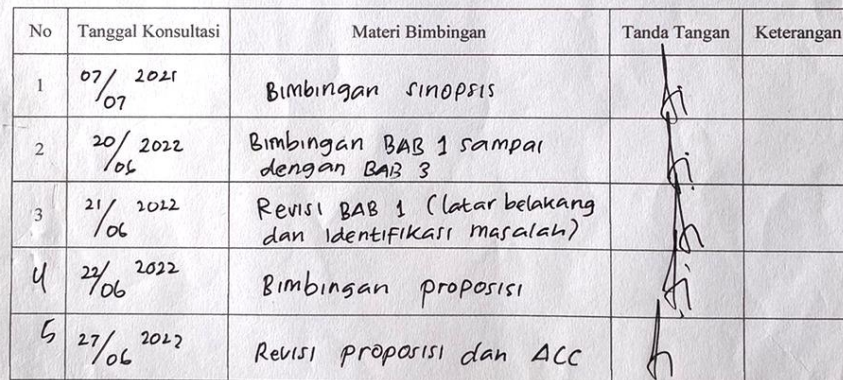 No Tanggal Konsultasi Materi Bimbingan Tanda Tangan Keterangan
1 07/07 2021 Bimbingan sinopsis
2 20/06 2022 Bimbingan BAB 1 sampai
dengan BAB 3
3 21/06 2022 Revisi BAB 1 (latar belakang
dan identifikasi masalah)
4 22/06 2022 Bimbingan proposisi
5 27/06 2022 Revisi proposisi dan ACC